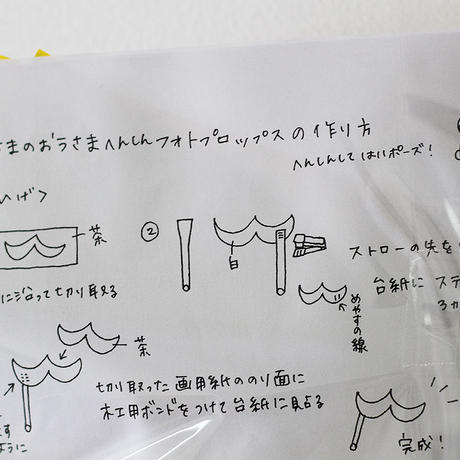 さまのおうさまへんしんフォトプロップスの作り方
へんしんしてはいポーズ!
ひげ>
茶
②
白
ストローの先を
台紙に ステ
3カ
めやすの線
に沿って切り取る
茶
切り取った画用紙ののり面に
木工用ボンドをつけて台紙に貼る
す
ように
完成!